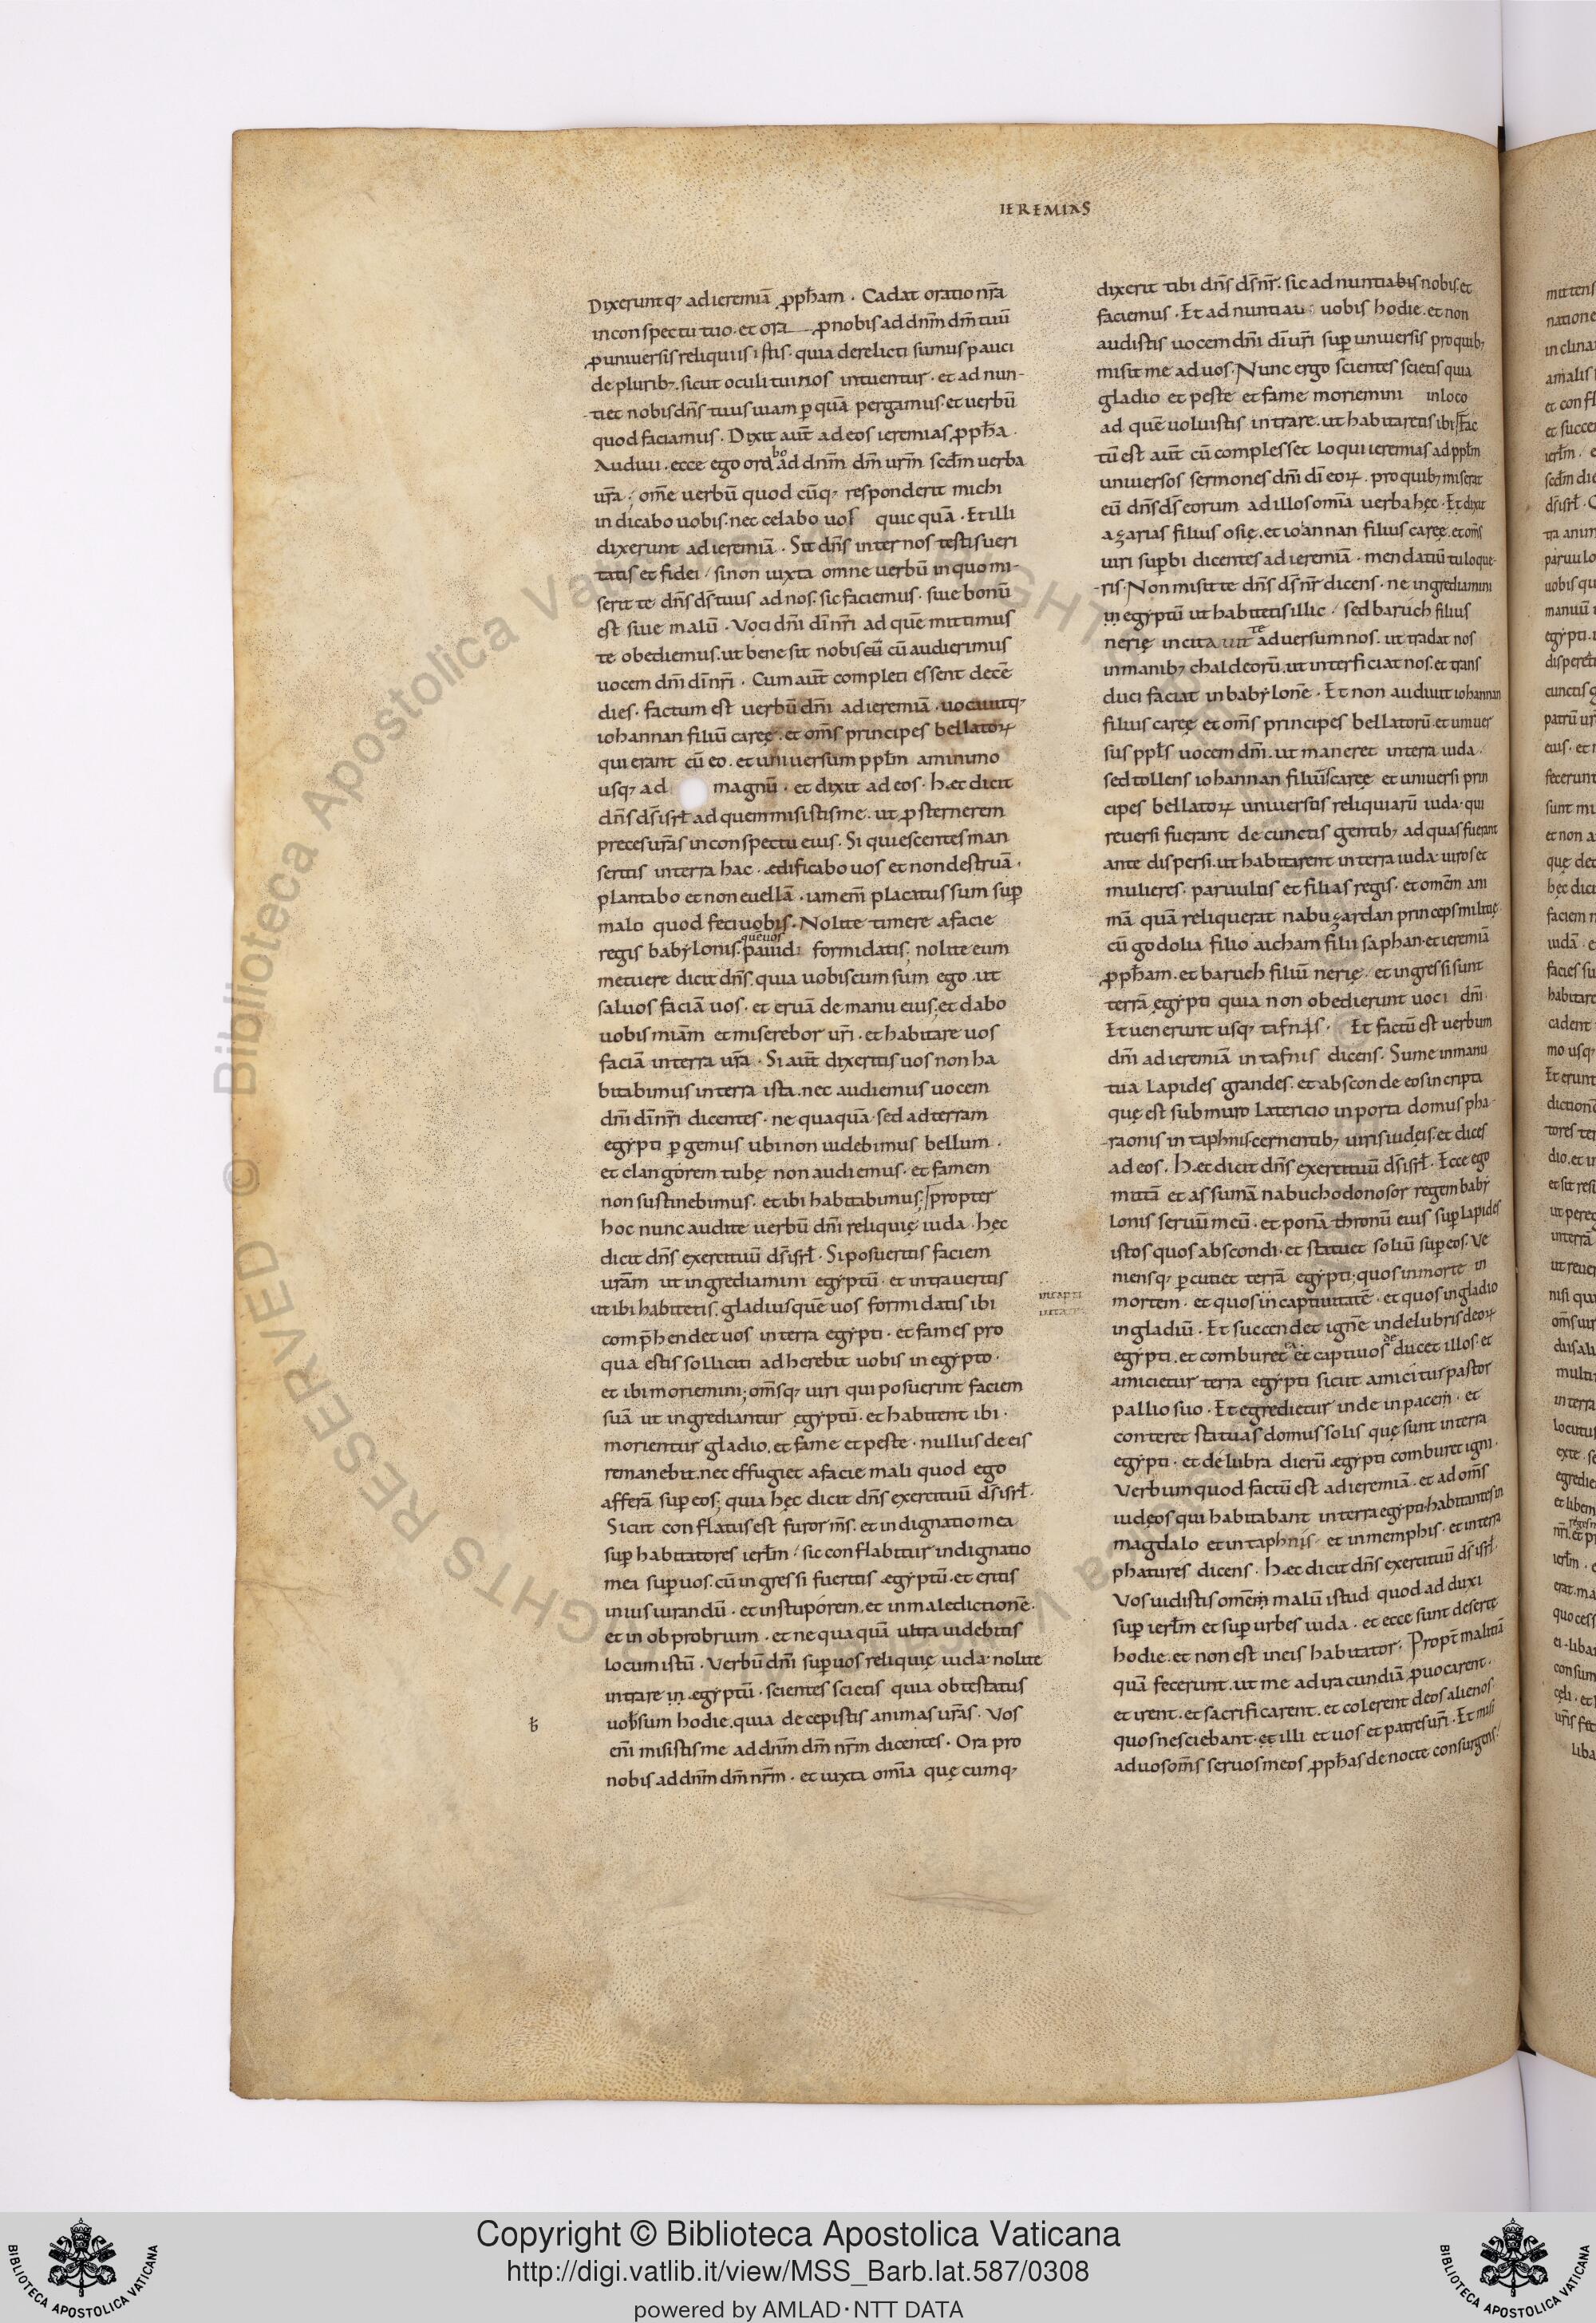 IEREMIAS
Dixeruntq; ad ieremiā ꝓph̄am · Cadat oratio nr̄a
in conspectu tuo · et ora ꝓ nobis ad dn̄m dm̄ tuū
ꝓ uniuersis reliquiis istis · quia derelicti sumus pauci
de plurib; · sicut oculi tui nos intuentur · et ad nun-
tiet nobis dn̄s tuus uiam ꝑ quā pergamus · et uerbū
quod faciamus · Dixit aut̄ ad eos ieremias ꝓph̄a ·
Audiui · ecce ego ora bo ad dn̄m dm̄ urm̄ scd̄m uerba
ur̄a ; om̄e uerbū quod cūq; responderit michi
indicabo uobis · nec celabo uos quic quā · Et illi
dixerunt ad ieremiā · Sit dn̄s inter nos testis ueri
tatis et fidei / si non iuxta omne uerbū in quo mi-
serit te dn̄s ds̄ tuus ad nos · sic faciemus · siue bonū
est siue malū · Voci dn̄i dī nr̄i ad quē mittimus
te obediemus · ut bene sit nobis cū cū audierimus
uocem dn̄i dī nr̄i · Cum aut̄ completi essent decē
dies · factum est uerbū dn̄i ad ieremiā · uocauitq;
iohannan filiū caręę · et om̄s principes bellatoꝝ
qui erant cū eo · et uniuersum ppl̄m a minimo
usq; ad magnū · et dixit ad eos · Hæc dicit
dn̄s ds̄ isrl̄ ad quem misistis me · ut ꝓsternerem
preces ur̄as in conspectu eius · Si quiescentes man
seritis in terra hac · ædificabo uos et non destruā ·
plantabo et non euellā · iam em̄ placatus sum sup̄
malo quod feci uobis · Nolite timere a facie
regis babẏlonis · quē uos pauidi formidatis ; nolite eum
metuere dicit dn̄s · quia uobiscum sum ego · ut
saluos faciā uos · et eruā de manu eius · et dabo
uobis miām et miserebor ur̄i · et habitare uos
faciā in terra ur̄a · Si aut̄ dixeritis uos non ha
bitabimus in terra ista · nec audiemus uocem
dn̄i dī nr̄i dicentes · ne quaquā · sed ad terram
egẏpti ꝑgemus ubi non uidebimus bellum ·
et clangorem tubę non audiemus · et famem
non sustinebimus · et ibi habitabimus ; propter
hoc nunc audite uerbū dn̄i reliquię iuda · hęc
dicit dn̄s exercituū ds̄ isrl̄ · Si posueritis faciem
ur̄am ut ingrediamini egẏptū · et intraueritis
ut ibi habitetis · gladius quē uos formidatis ibi
comp̄hendet uos in terra egẏpti · et fames pro
qua estis solliciti adherebit uobis in egẏpto ·
et ibi moriemini ; om̄sq; uiri qui posuerint faciem
suā ut ingrediantur egẏptū · et habitent ibi ·
morientur gladio · et fame et peste · nullus de eis
remanebit · nec effugiet a facie mali quod ego
afferā sup̄ eos ; quia hęc dicit dn̄s exercituū ds̄ isrl̄ ·
Sicut conflatus est furor m̄s · et indignatio mea
sup̄ habitatores ierl̄m / sic conflabitur indignatio
mea sup̄ uos · cū ingressi fueritis ægẏptū · et eritis
in ius iurandū · et in stuporem · et in maledictionē ·
et in obprobrium · et ne qua quā ultra uidebitis
locum istū · Verbū dn̄i sup̄ uos reliquię iuda · nolite
intrare in ægẏptū · scientes scietis quia obtestatus
uob̄ sum hodie · quia decepistis animas ur̄as · Vos
em̄ misistis me ad dn̄m dm̄ nr̄m dicentes · Ora pro
nobis ad dn̄m dm̄ nr̄m · et iuxta om̄ia quę cumq;
dixerit tibi dn̄s ds̄ nr̄ · sic ad nuntiabis nobis · et
faciemus · Et ad nuntiaui uobis hodie · et non
audistis uocem dn̄i dī ur̄i sup̄ uniuersis pro quib;
misit me ad uos · Nunc ergo scientes scietis quia
gladio et peste et fame moriemini in loco
ad quē uoluistis intrare · ut habitaretis ibi Fac
tū est aut̄ cū complesset loqui ieremias ad ppl̄m
uniuersos sermones dn̄i dī eoꝝ · pro quib; miserat
eū dn̄s ds̄ eorum ad illos om̄ia uerba hęc · Et dixit
azarias filius osię · et ioannan filius caręę · et om̄s
uiri sup̄bi dicentes ad ieremiā · mendatiū tu loque-
ris · Non misit te dn̄s ds̄ nr̄ dicens · ne ingrediamini
in egẏptū ut habitetis illic / sed baruch filius
nerię incitauit te aduersum nos · ut tradat nos
in manib; chaldeorū · ut interficiat nos · et trans
duci faciat in babẏlonē · Et non audiuit iohannan
filius caręę et om̄s principes bellatorū · et uniuer
sus ppl̄s uocem dn̄i · ut maneret in terra iuda ·
sed tollens iohannan filiūs caręę et uniuersi prin
cipes bellatoꝝ uniuersos reliquiarū iuda · qui
reuersi fuerant de cunctis gentib; ad quas fuerant
ante dispersi · ut habitarent in terra iuda · uiros et
mulieres · paruulos et filias regis · et omēm ani
mā quā reliquerat nabuzardan princeps militię
cū godolia filio aicham filii saphan · et ieremiā
ꝓph̄am · et baruch filiū nerię · et ingressi sunt
terrā egẏpti quia non obedierunt uoci dn̄i ·
Et uenerunt usq; tafnis · Et factū est uerbum
dn̄i ad ieremiā in tafnis dicens · Sume in manu
tua lapides grandes · et absconde eos in cripta
quę est sub muro latericio in porta domus pha-
raonis in taphnis cernentib; uiris iudęis · et dices
ad eos · Hæc dicit dn̄s exercituū ds̄ isrl̄ · Ecce ego
mittā et assumā nabuchodonosor regem babẏ
lonis seruū meū · et ponā thronū eius sup̄ lapides
istos quos abscondi · et statuet soliū sup̄ eos · Ve
niensq; ꝑcutiet terrā egẏpti ; quos in morte in
mortem · et quos in captiuitatē · et quos in gladio
in gladiū · Et succendet ignē in delubris deoꝝ
egẏpti · et comburet ea et captiuos de ducet illos · et
amicietur terra egẏpti sicut amicitur pastor
pallio suo · Et egredietur inde in pacem · et
conteret statuas domus solis quę sunt in terra
egẏpti · et delubra dierū ægẏpti comburet igni ·
Verbum quod factū est ad ieremiā · et ad om̄s
iudęos qui habitabant in terra egẏpti · habitantes in
magdalo et in taphnis · et in memphis · et in terra
phatures dicens · Hæc dicit dn̄s exercituū ds̄ isrl̄ ·
Vos uidistis omēm malū istud quod adduxi
sup̄ ierl̄m et sup̄ urbes iuda · et ecce sunt desertę
hodie · et non est in eis habitator ; Propt̄ malitiā
quā fecerunt · ut me ad iracundiā ꝓuocarent ·
et irent · et sacrificarent · et colerent deos alienos ·
quos nesciebant · et illi et uos et patres ur̄i · Et misi
ad uos om̄s seruos meos ꝓph̄as de nocte consurgens /
© Biblioteca Apostolica Vaticana ALL RIGHTS RESERVED
Copyright © Biblioteca Apostolica Vaticana
http://digi.vatlib.it/view/MSS_Barb.lat.587/0308
powered by AMLAD·NTT DATA
BIBLIOTECA APOSTOLICA VATICANA
BIBLIOTECA APOSTOLICA VATICANA